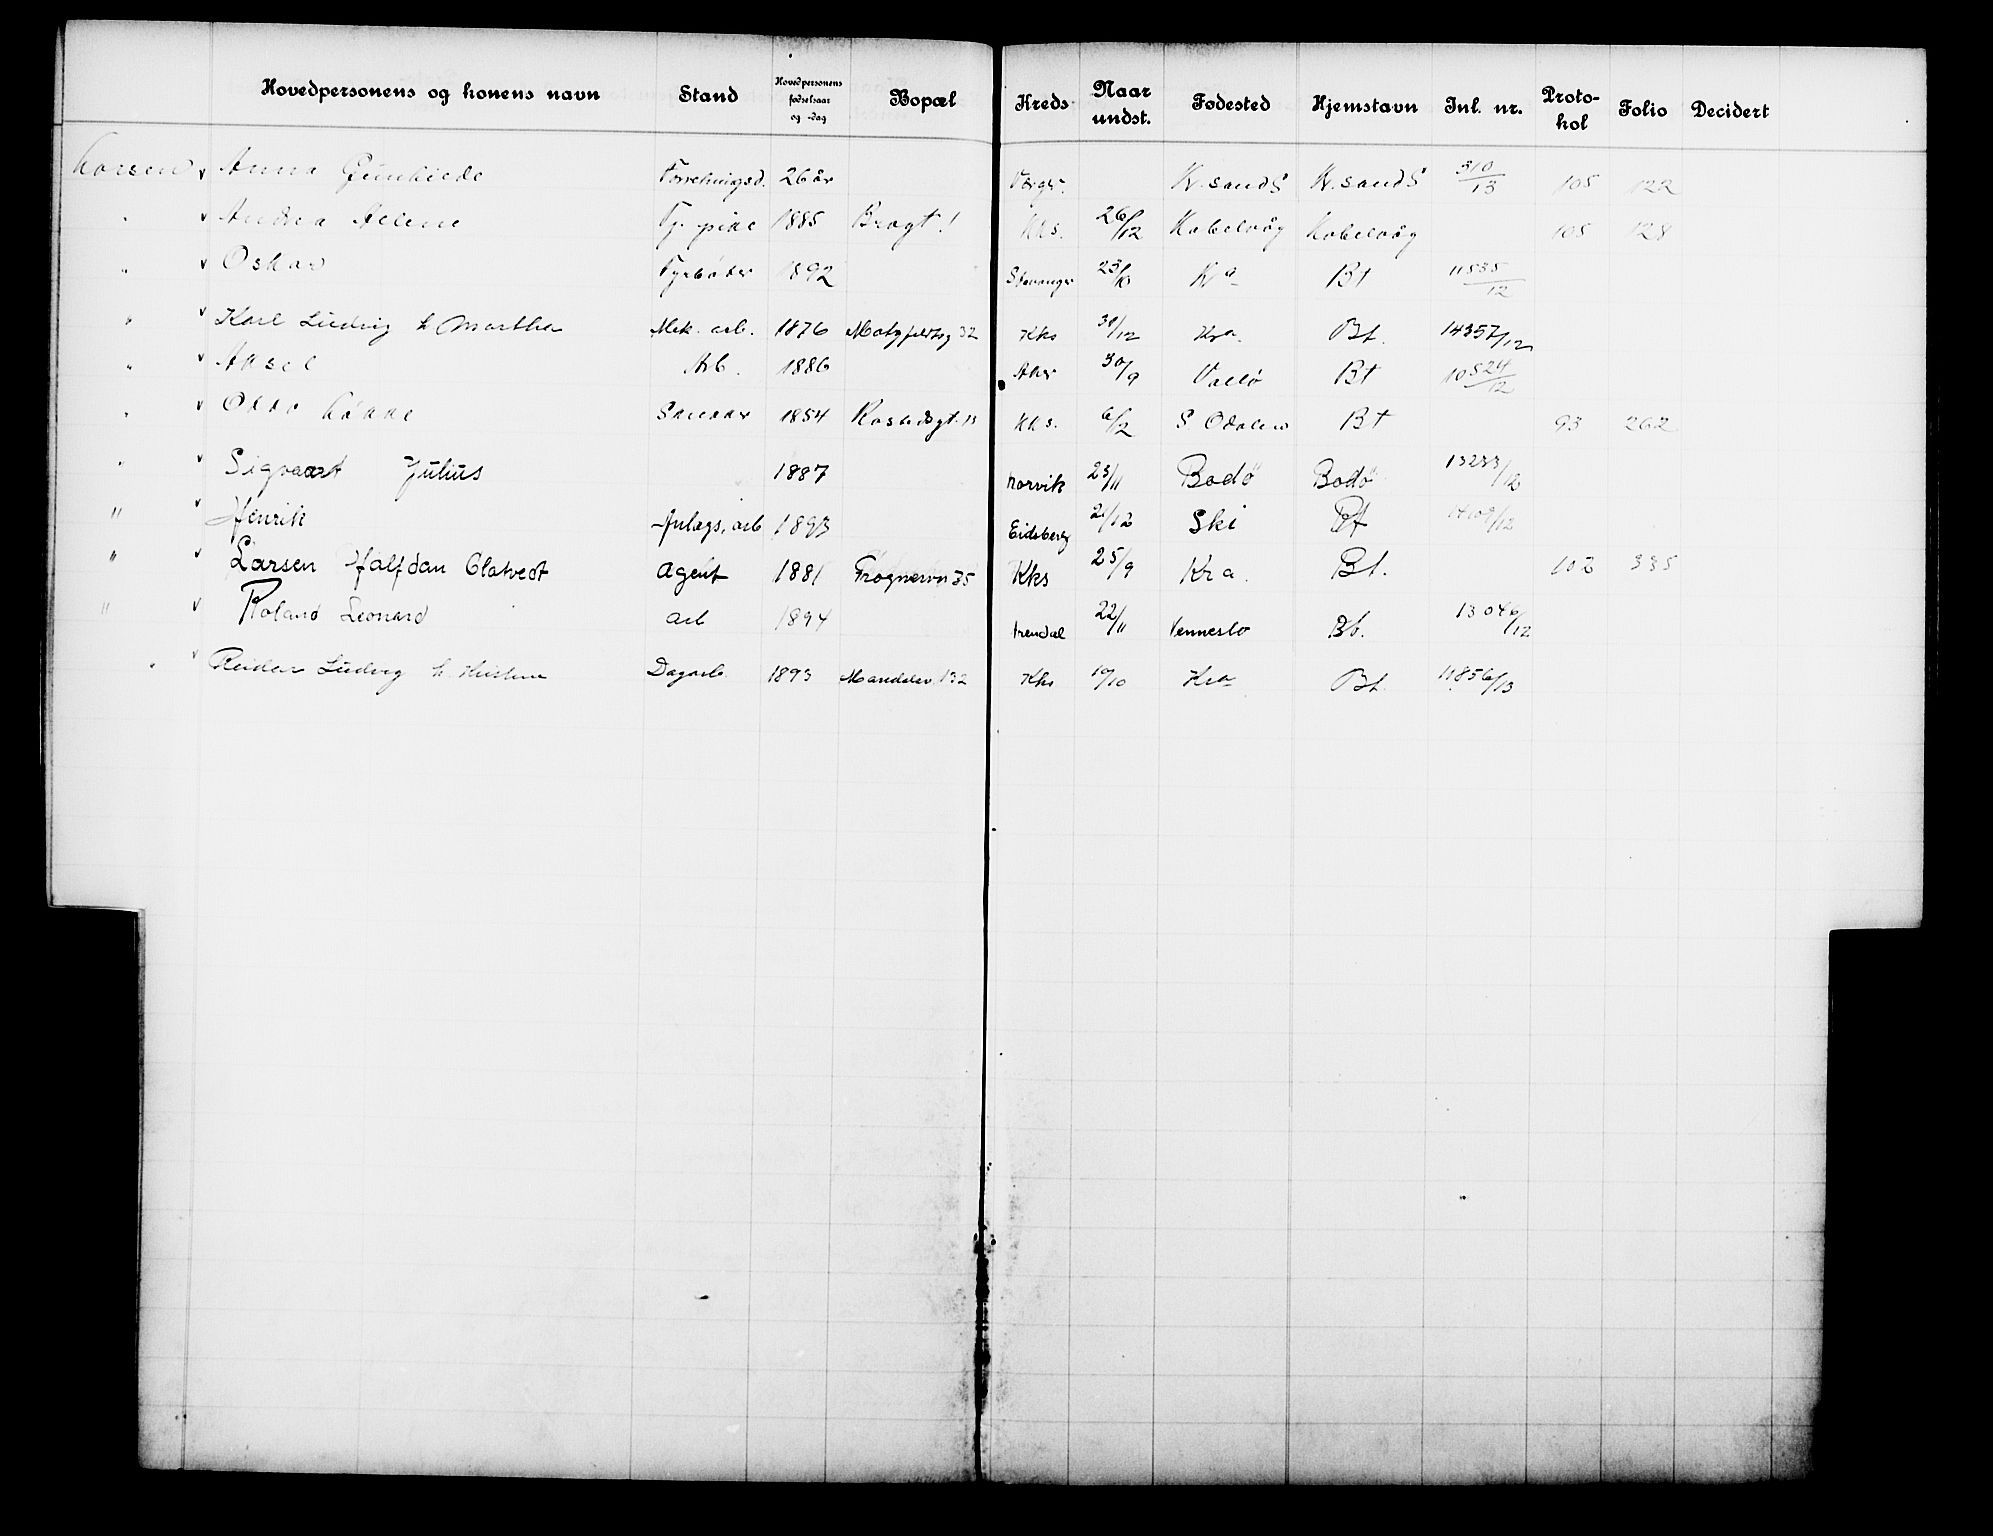 Hovedpersonens og konens navn Stand Hovedpersonens fødselsaar og -dag Bopæl Kreds Naar undst. Fødested Hjemstavn Inl. nr. Protokol Folio Decidert
Larsen v Anna 26 år Kr.sand S Kr.sand S 310/13 105 122
" v Andrea Tj. pike 1885 Kks. 26/12 Kabelvåg Kabelvåg 105 128
" v Oskar Fyrbøter 1892 Stavanger 23/10 Kra Bt 11535/12
" v Karl Ludvig h Martha Mek. arb. 1876 32 Kks 30/12 Kra. Bt. 14357/12
" v Aksel Arb. 1886 Aker 30/9 Vallø Bt 10524/12
" v Otto 1854 Rostedsgt. 13 Kks. 6/2 S Odalen Bt 93 262
" v Sigvart Julius 1887 Narvik 23/11 Bodø Bodø 13233/12
" v Henrik Anlægs.arb 1893 Eidsberg 21/12 Ski Bt
" v Larsen Halfdan Olatvedt Agent 1881 Frognervn 35 Kks 25/9 Kra. Bt. 102 335
" v Roland Leonard arb 1894 22/11 Vennesla Bt. 13046/12
" v Reidar Ludvig h. Dagarb. 1893 132 Kks 10/10 Kra Bt 11856/13